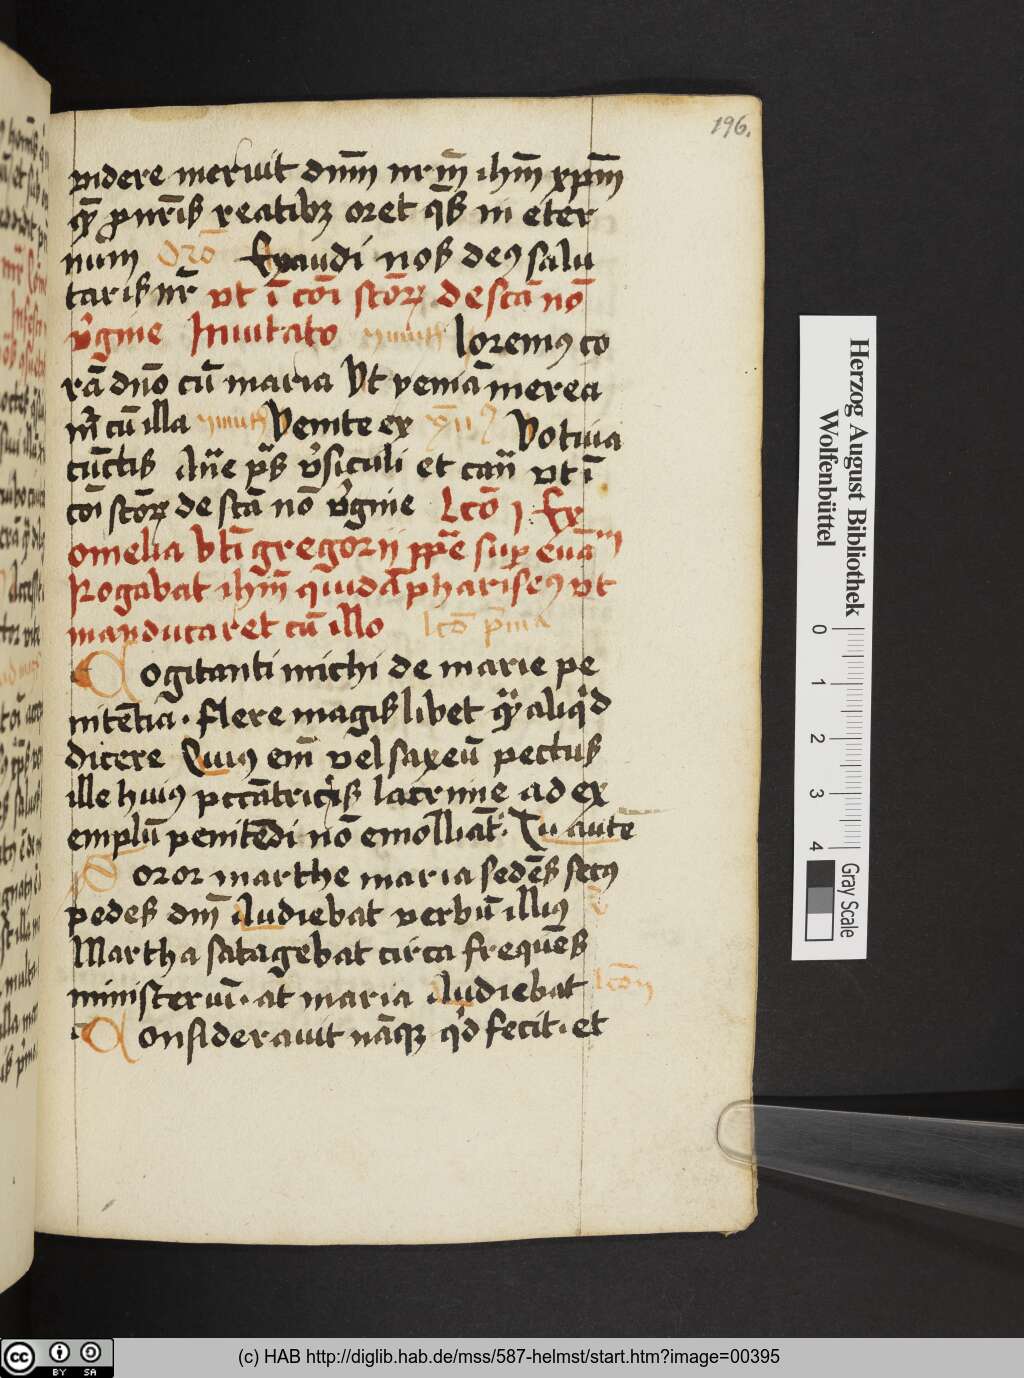 196.
pidere meruit dnm̄ nrm̄ ihm̄ xpm̄
num Exaudi nos deꝰ salu
taris nr̄ vt ī cōi scōꝝ de scā nō
v̄gine Inuitato loremꝰ co
rā dnō cū maria Vt veniā merea
m̄ cū illa Venite ex Votiua
cūctis Añe ps v̄siculi et can̄ vt ī
cōi scōꝝ de scā nō v̄gine Lcō j Ex
omelia bti gregorii ppe sup euā
Rogabat ihm̄ quidā phariseꝰ vt
manducaret cū illo lcō p̄ma
Cogitanti michi de marie pe
nitētia · flere magis libet qͣ aliqͥd
dicere Cuiꝰ em̄ vel saxeū pectus
ille huiꝰ pccātricis lacrime ad ex
emplū penitēdi nō emolliāt · Tu autē
Soror marthe maria sedēs secꝰ
pedes dm̄ Audiebat verbū illiꝰ
Martha satagebat circa frequēs
ministeriū · at maria Audiebat lcōn
Considerauit nāqꝫ qd fecit · et
Herzog August Bibliothek
Wolfenbüttel
0 1 2 3 4
Gray Scale
cc BY SA
(c) HAB http://diglib.hab.de/mss/587-helmst/start.htm?image=00395